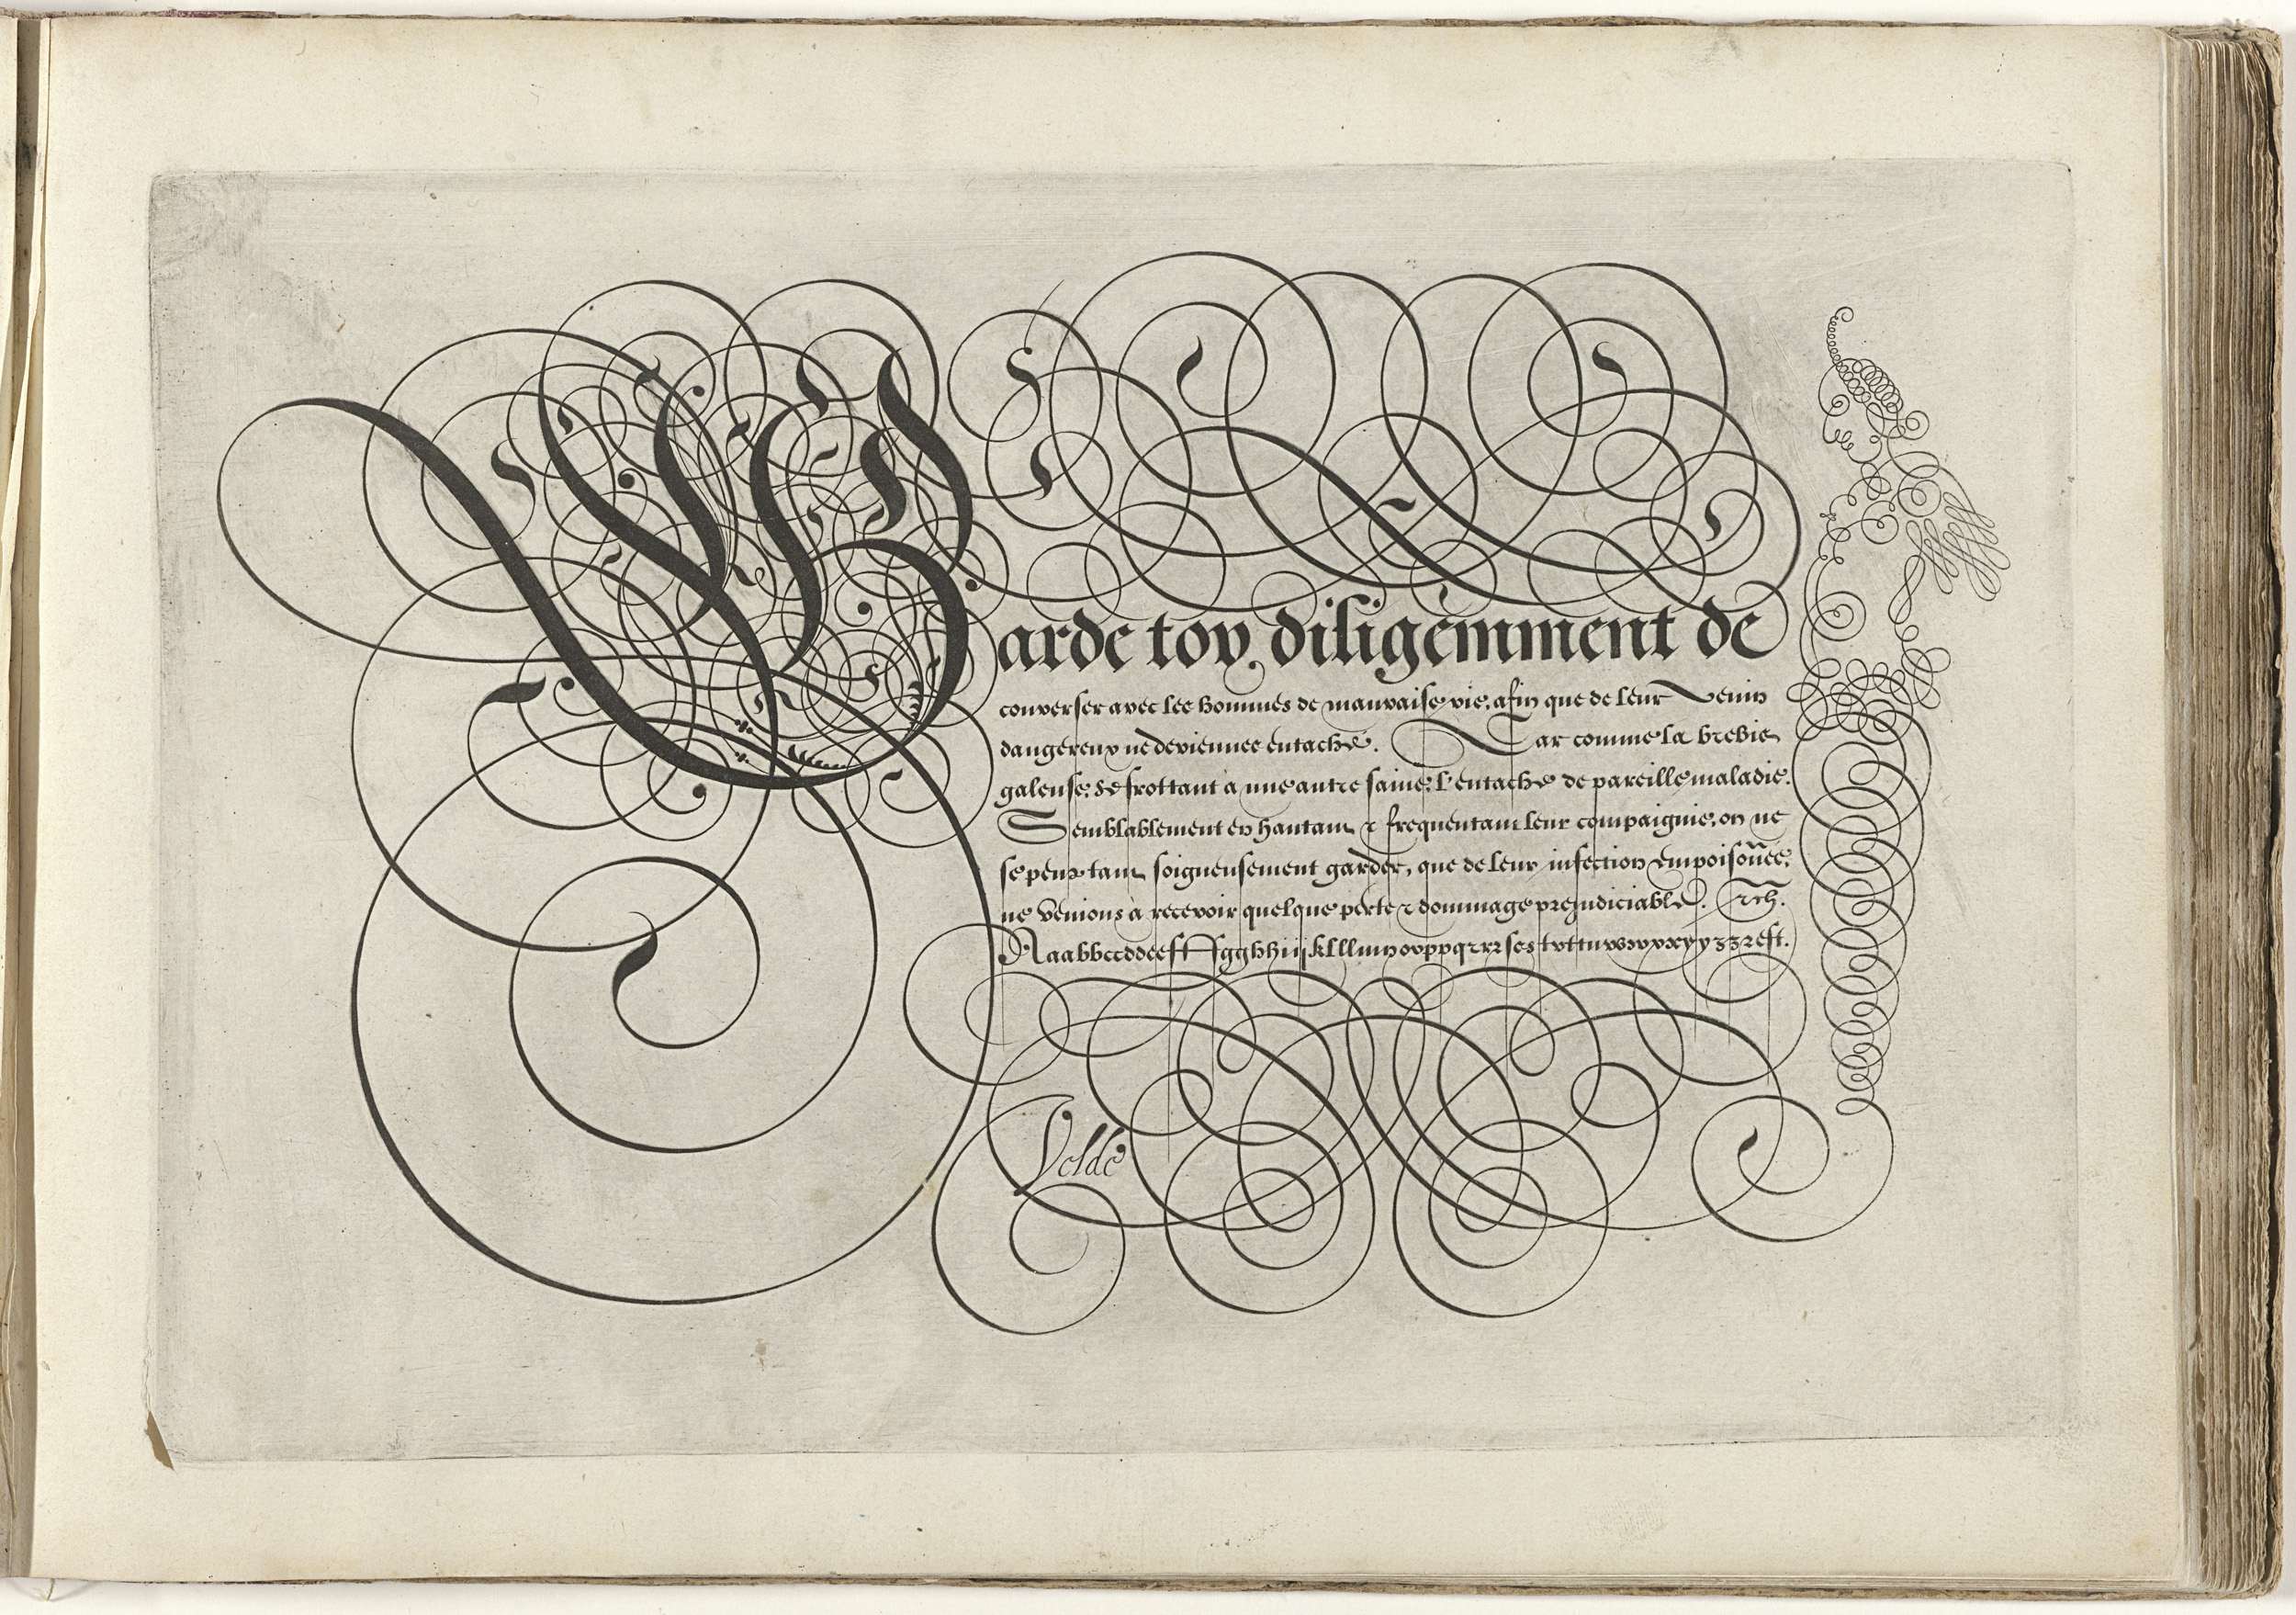 Warde toy diligemment de
converser avec les hommes de mauvaise vie, afin que de leur venin
dangereux ne deviennes entaché. Car comme la brebis
galeuse, se frottant à une autre saine, l'entache de pareille maladie.
Semblablement en hantant & frequentant leur compaignie, on ne
se peut tant soigneusement garder, que de leur infection empoisoñee,
ne venions à recevoir quelque perte & dommage prejudiciable. &ch.
Aaabbccddeeff
Velde